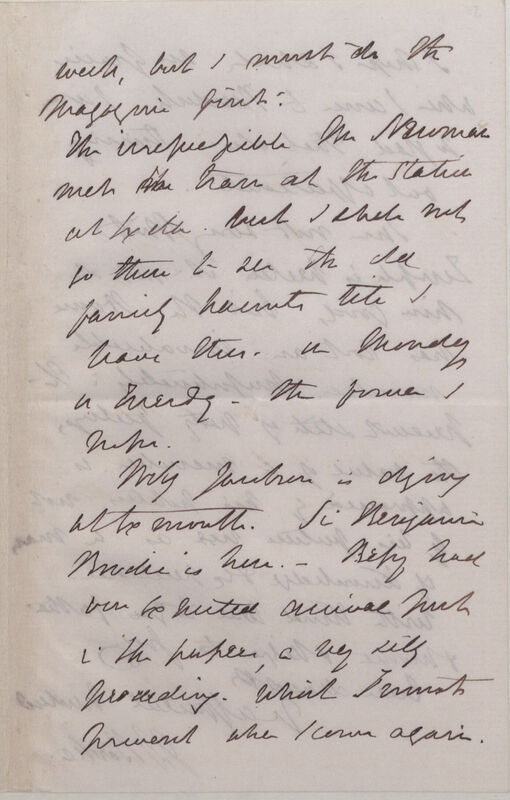 week, but I must do the
Magazine first.
The irrepressible Mr Newman
met the train at the Station
at Exeter. but I shall not
go there to see the old
family haunts till I
leave this. on Monday
or Tuesday - the former I
hope.
Willy Jackson is dying
at Exmouth. Sir Benjamin
Brodie is here. - Betsy had
our arrival put
in the papers, a very silly
proceeding. which I must
prevent when I come again.